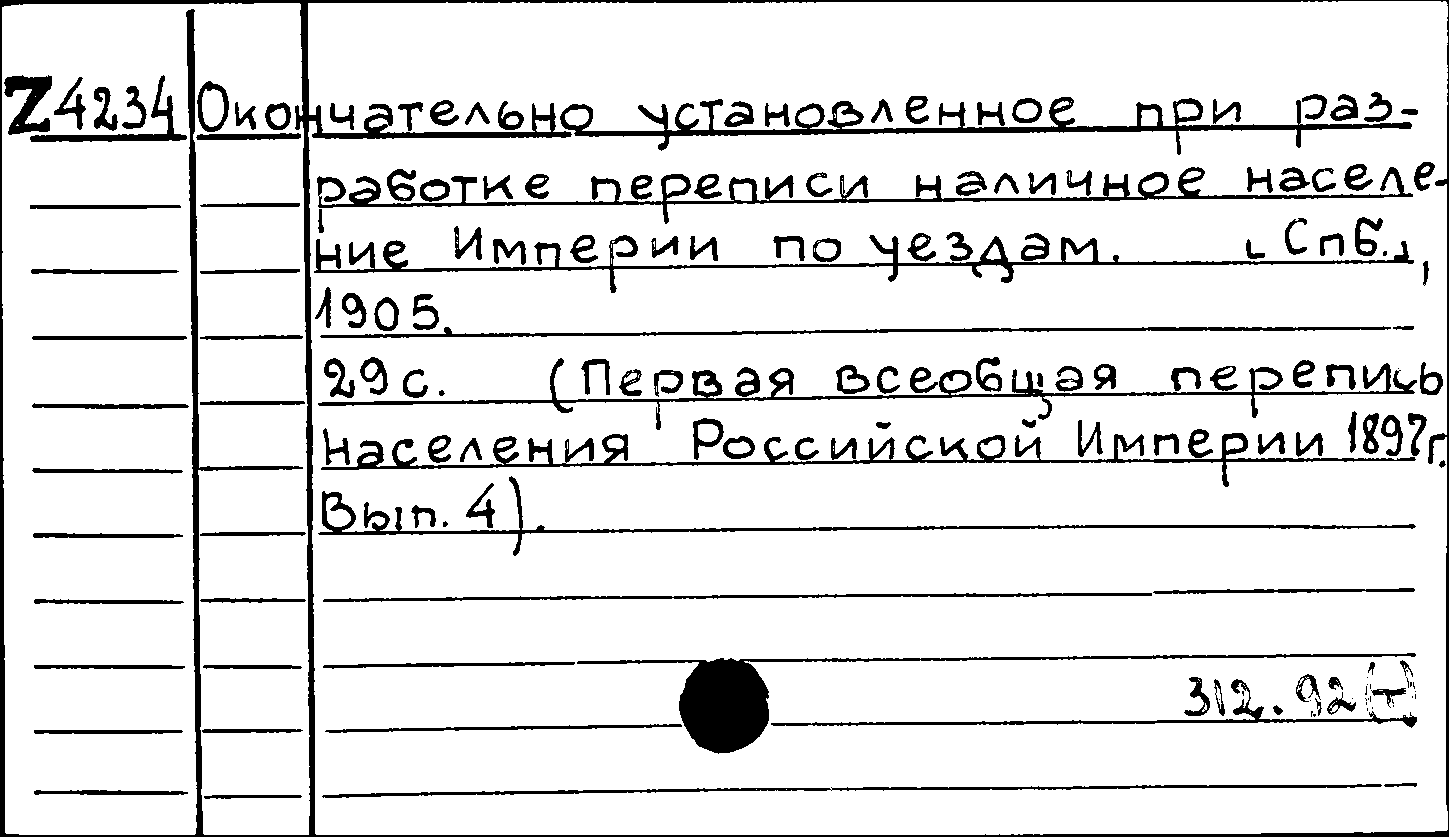 Z4234 Окончательно установленное при раз-
работке переписи наличное населе-
ние Империи по уездам. [Спб.],
1905.
29с. (Первая всеобщая перепись
населения Российской Империи 1897г.
Вып. 4).
312.92(-)